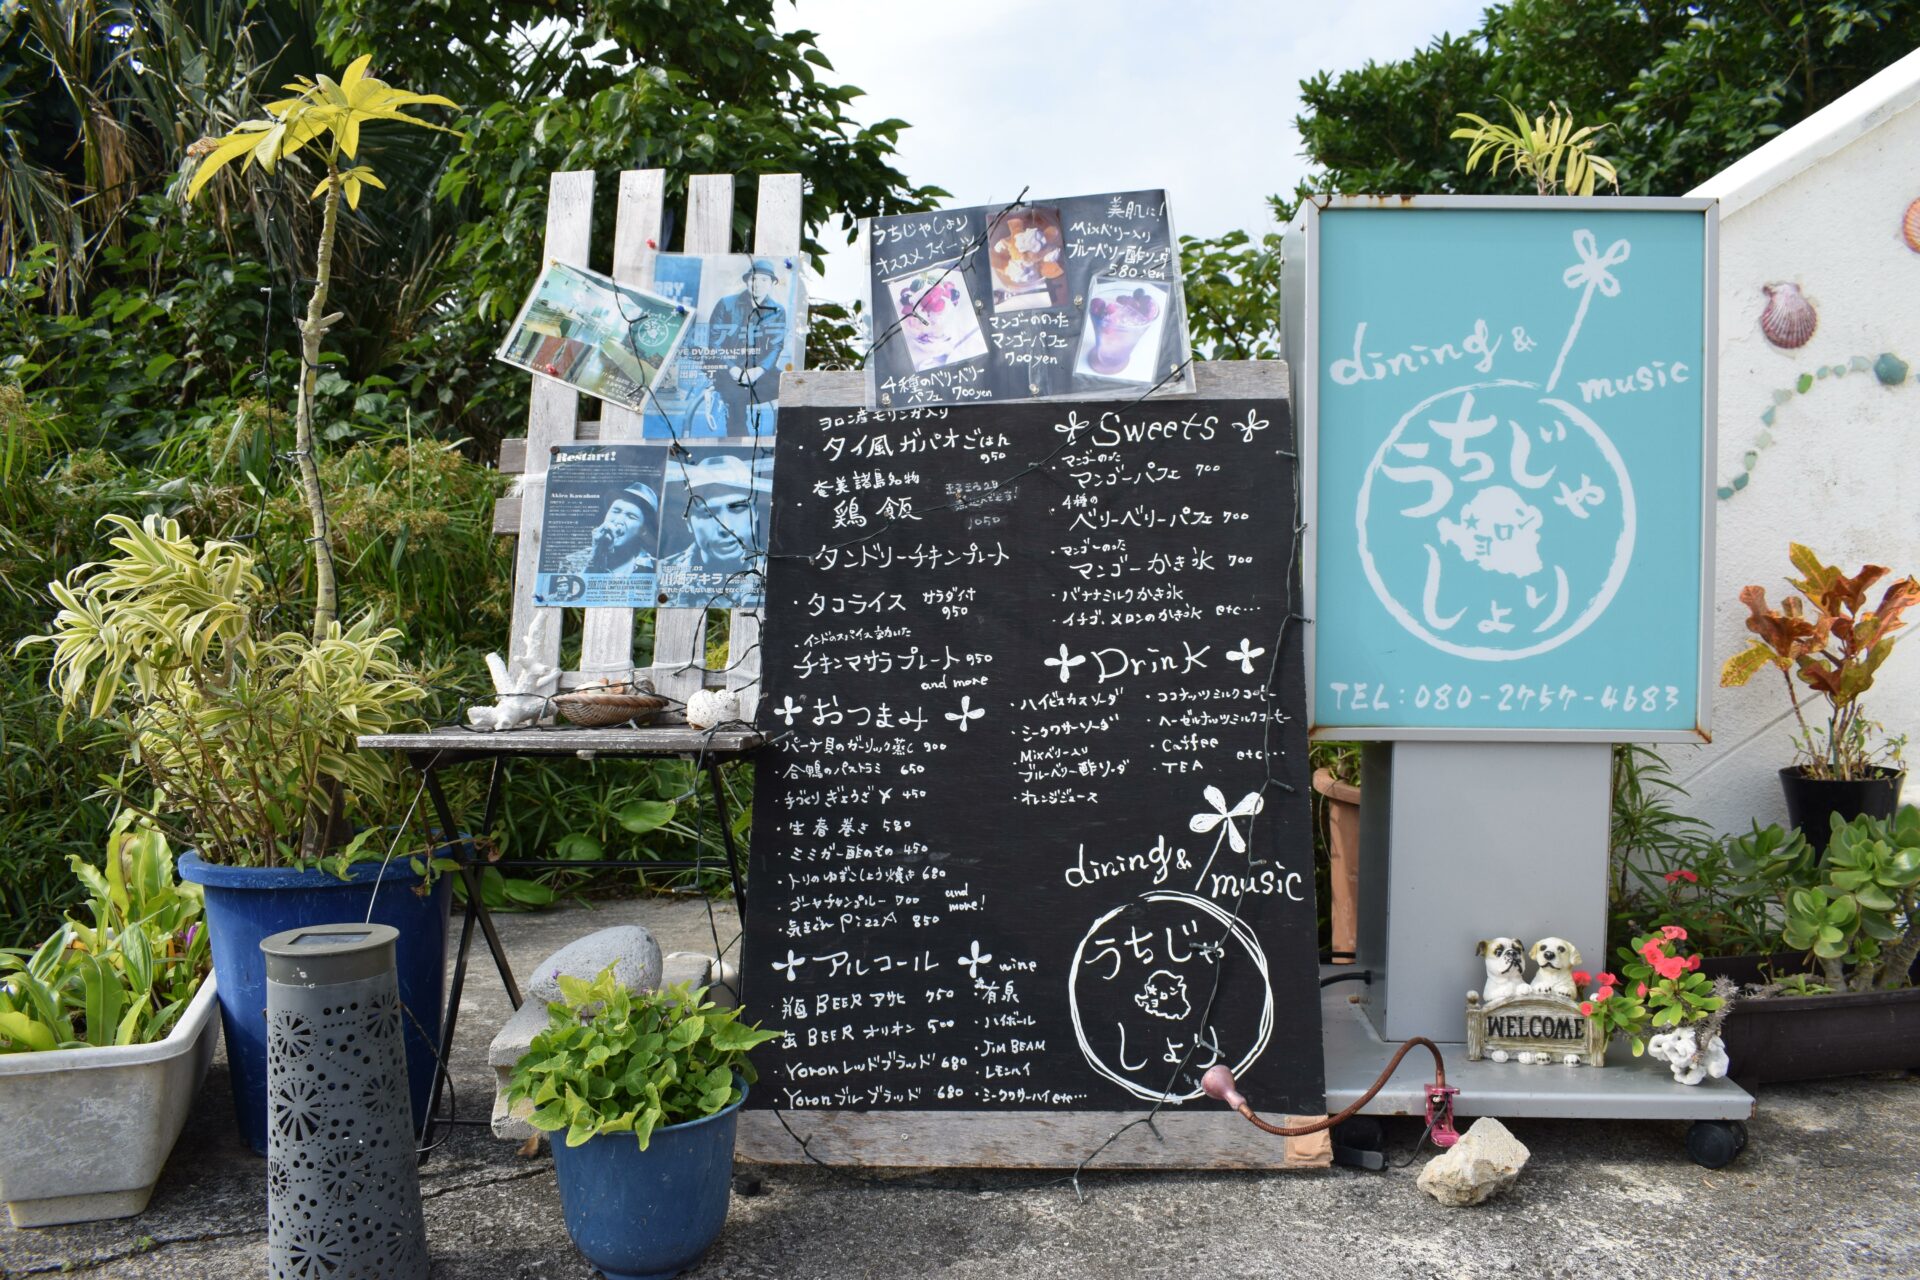 うちじゃしょり
オススメ スイーツ
美肌に!
Mixベリー入り
ブルーベリー酢ソーダ
580yen
マンゴーののった
マンゴーパフェ
700yen
4種のベリーベリー
パフェ 700yen
川畑アキラ
LIVE DVDがついに発売!!
出前一丁
Restart!
Akira Kawabata
川畑アキラ
ヨロン産モリンガ入り
・タイ風ガパオごはん
950
奄美諸島名物
・鶏飯
1050
・タンドリーチキンプレート
・タコライス サラダ付
950
インドのスパイス効いた
チキンマサラプレート 950
and more
おつまみ
・パーナ貝のガーリック蒸し 900
・合鴨のパストラミ 650
・手づくりぎょうざ 450
・生春巻き 580
・ミミガー酢のもの 450
・トリのゆずこしょう焼き 680
・ゴーヤチャンプルー 700
and more!
・気まぐれ PizzA 850
アルコール
・瓶BEER アサヒ 750
・缶BEER オリオン 500
・Yoronレッドブラッド 680
・Yoronブルーブラッド 680
wine
・有泉
・ハイボール
・JIM BEAM
・レモンハイ
・シークワサーハイ etc…
Sweets
・マンゴーのった
マンゴーパフェ 700
・4種の
ベリーベリーパフェ 700
・マンゴーのった
マンゴーかき氷 700
・バナナミルクかき氷
・イチゴ、メロンのかき氷 etc…
Drink
・ハイビスカスソーダ
・シークワサーソーダ
・Mixベリー入り
ブルーベリー酢ソーダ
・オレンジジュース
・ココナッツミルクコーヒー
・ヘーゼルナッツミルクコーヒー
・Caffee
・TEA
etc…
dining & music
うちじゃしょり
ヨロン
dining & music
うちじゃしょり
ヨロン
TEL:080-2757-4683
WELCOME